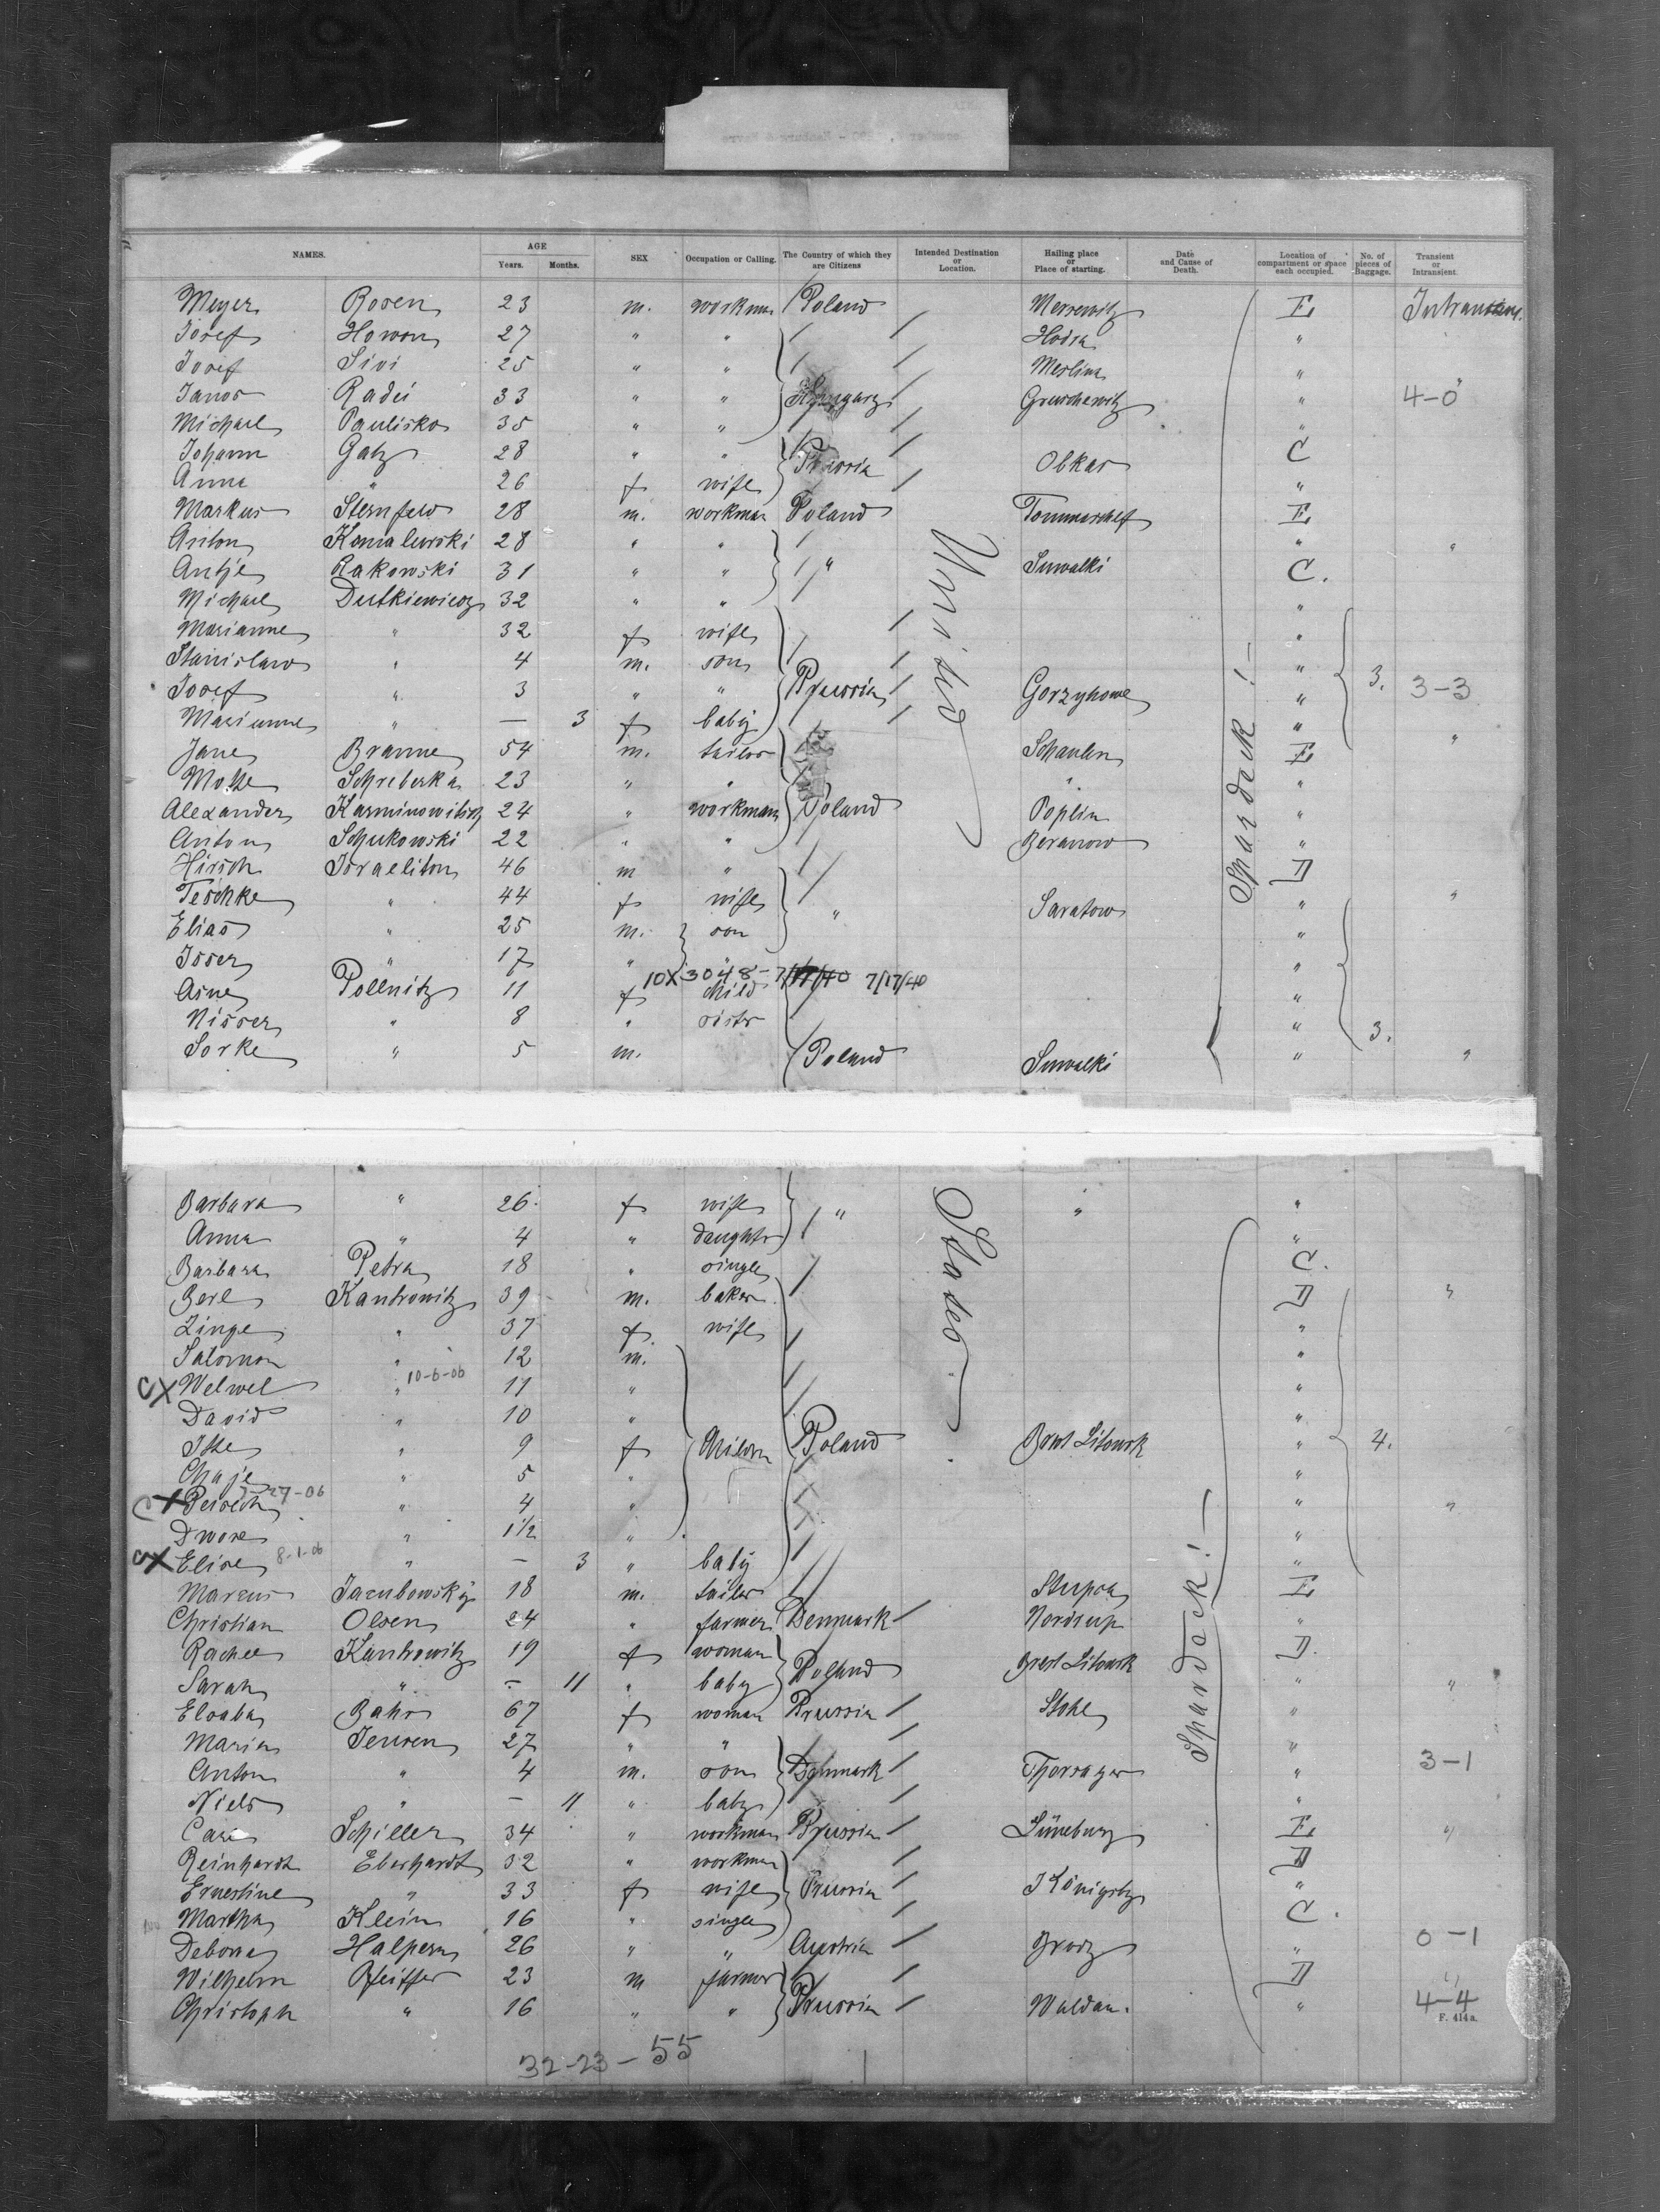 NAMES. AGE Years. Months. SEX Occupation or Calling. The Country of which they are Citizens Intended Destination or Location. Hailing place or Place of starting. Date and Cause of Death. Location of compartment or space each occupied. No. of pieces of Baggage. Transient or Intransient.
Meyer Rosen 23 m. workman Poland E
Josef 27 " " "
Josef Sivi 25 " " "
Janos Radei 33 " " Hungary " 4-0
Michael Paulisko 35 " " "
Johann Gatz 28 " " Prussia Obkas C
Anna " 26 f wife "
Markus 28 m. workman Poland E
Anton 28 " " " "
Antje Rakowski 31 " " " Suwalki C.
Michael Dutkiewicz 32 " " "
Marianne " 32 f wife "
Stanislaw " 4 m. son "
Josef " 3 " " Prussia " 3. 3-3
Marianne " — 3 f baby "
Jane Branne 54 m. tailor Schaulen E "
Schreberka 23 " " " "
Alexander 24 " workman Poland Poplin "
Anton Schukowski 22 " " Beranow "
Hirsch Israeliton 46 m " D
Teschke " 44 f wife " Saratow " "
Elias " 25 m. son "
Isser " 17 " " "
10X3048- 7/17/40
Asne Pollnitz 11 f child "
Nisser " 8 " sister " 3.
Sorke " 5 m. Poland Suwalki " "
United
Spardeck!—
Barbara " 26. f wife " " "
Anna " 4 " daughter "
Barbara Petra 18 " single C.
Berl Kantrowitz 39 m. baker D "
Zinge " 37 f wife "
Salomon " 12 m. "
CX Welwel " 10-6-06 11 " "
David " 10 " "
" 9 f children Poland Brest Litowsk " 4.
Chaje " 5 " "
CX 27-06 " 4 " " "
Dwore " 1½ " "
CX Elise 8-1-06 " — 3 " baby "
Marcus Jacubowsky 18 m. tailor E
Christian Olsen 24 " farmer Denmark Nordrup "
Rachel Kantrowitz 19 f woman Poland Brest Litowsk D.
Sarah " — 11 " baby " "
Bahr 67 f woman Prussia "
Maria Jensen 27 " " "
Anton " 4 m. son Denmark Thorsager " 3-1
Niels " — 11 " baby "
Carl Schiller 34 " workman Prussia Lüneburg E "
Reinhardt Eberhardt 32 " workman D
Ernestine " 33 f wife Prussia "
Martha Klein 16 " single C.
Halpern 26 " " Austria Brody " 0-1
Wilhelm Pfeiffer 23 m farmer D "
Christoph " 16 " " Prussia Waldau. " 4-4
States
Spardeck!—
F. 414a.
32-23-55